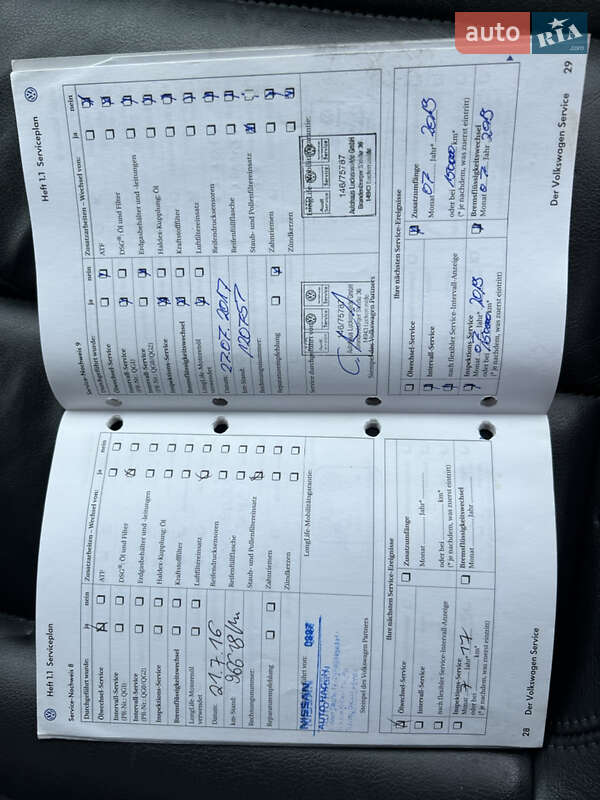 auto RIA .com
Heft 1.1 Serviceplan
Service-Nachweis 8
Durchgeführt wurde:
ja
nein
Ölwechsel-Service
Intervall-Service
(PR-Nr.: QG1)
Intervall-Service
(PR-Nr.: QG0/QG2)
Inspektions-Service
Bremsflüssigkeitswechsel
LongLife-Motorenöl
verwendet
Datum: 21.7.16
km-Stand:
Rechnungsnummer:
Reparaturempfehlung
Zusatzarbeiten – Wechsel von:
ja
nein
ATF
DSG®: Öl und Filter
Erdgasbehälter und -leitungen
Haldex-Kupplung: Öl
Kraftstofffilter
Luftfiltereinsatz
Reifendrucksensoren
Reifenfüllflasche
Staub- und Pollenfiltereinsatz
Zahnriemen
Zündkerzen
LongLife-Mobilitätsgarantie:
NISSAN
Stempel des Volkswagen Partners
Ihre nächsten Service-Ereignisse
Ölwechsel-Service
Intervall-Service
nach flexibler Service-Intervall-Anzeige
Inspektions-Service
Monat 7 Jahr* 17
oder bei km*
(* je nachdem, was zuerst eintritt)
Zusatzumfänge
Monat Jahr*
oder bei km*
(* je nachdem, was zuerst eintritt)
Bremsflüssigkeitswechsel
Monat Jahr
28
Der Volkswagen Service
Heft 1.1 Serviceplan
Service-Nachweis 9
Durchgeführt wurde:
ja
nein
Ölwechsel-Service
Intervall-Service
(PR-Nr.: QG1)
Intervall-Service
(PR-Nr.: QG0/QG2)
Inspektions-Service
Bremsflüssigkeitswechsel
LongLife-Motorenöl
verwendet
Datum: 27.07.2017
km-Stand: 120757
Rechnungsnummer:
Reparaturempfehlung
Service durchgeführt von:
Stempel des Volkswagen Partners
Zusatzarbeiten – Wechsel von:
ja
nein
ATF
DSG®: Öl und Filter
Erdgasbehälter und -leitungen
Haldex-Kupplung: Öl
Kraftstofffilter
Luftfiltereinsatz
Reifendrucksensoren
Reifenfüllflasche
Staub- und Pollenfiltereinsatz
Zahnriemen
Zündkerzen
Service
Service
146/75787
Brandenburger Straße 36
14943 Luckenwalde
Ihre nächsten Service-Ereignisse
Ölwechsel-Service
Intervall-Service
nach flexibler Service-Intervall-Anzeige
Inspektions-Service
Monat 07 Jahr* 2019
oder bei km*
(* je nachdem, was zuerst eintritt)
Zusatzumfänge
Monat 07 Jahr* 2019
oder bei km*
(* je nachdem, was zuerst eintritt)
Bremsflüssigkeitswechsel
Monat 07 Jahr 2019
Der Volkswagen Service
29